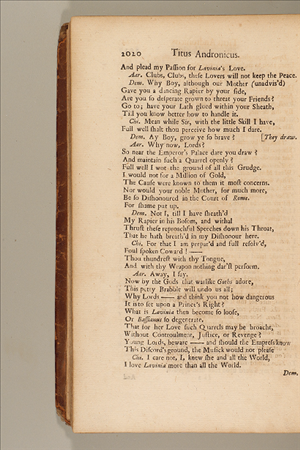 2020 Titus Andronicus.
And plead my Passion for Lavinia's Love.
Aar. Clubs, Clubs, these Lovers will not keep the Peace.
Dem. Why Boy, although our Mother (unadvis'd)
Gave you a dancing Rapier by your side,
Are you so desperate grown to threat your Friends?
Go to; have your Lath glued within your Sheath,
Till you know better how to handle it.
Chi. Mean while Sir, with the little Skill I have,
Full well shalt thou perceive how much I dare.
Dem. Ay Boy, grow ye so brave? [They draw.
Aar. Why now, Lords?
So near the Emperor's Palace dare you draw?
And maintain such a Quarrel openly?
Full well I wot the ground of all this Grudge.
I would not for a Million of Gold,
The Cause were known to them it most concerns.
Nor would your noble Mother, for much more,
Be so Dishonoured in the Court of Rome.
For shame put up.
Dem. Not I, till I have sheath'd
My Rapier in his Bosom, and withal
Thrust these reproachful Speeches down his Throat,
That he hath breath'd in my Dishonour here.
Chi. For that I am prepar'd and full resolv'd,
Foul spoken Coward! ——
Thou thundrest with thy Tongue,
And with thy Weapon nothing dar'st perform.
Aar. Away, I say.
Now by the Gods that warlike Goths adore,
This pretty Brabble will undo us all;
Why Lords —— and think you not how dangerous
It is to set upon a Prince's Right?
What is Lavinia then become so loose,
Or Bassianus so degenerate,
That for her Love such Quarrels may be broacht,
Without Controulment, Justice, or Revenge?
Young Lords, beware —— and should the Empress know
This Discord's ground, the Musick would not please
Chi. I care not, I, knew she and all the World,
I love Lavinia more than all the World.
Dem.